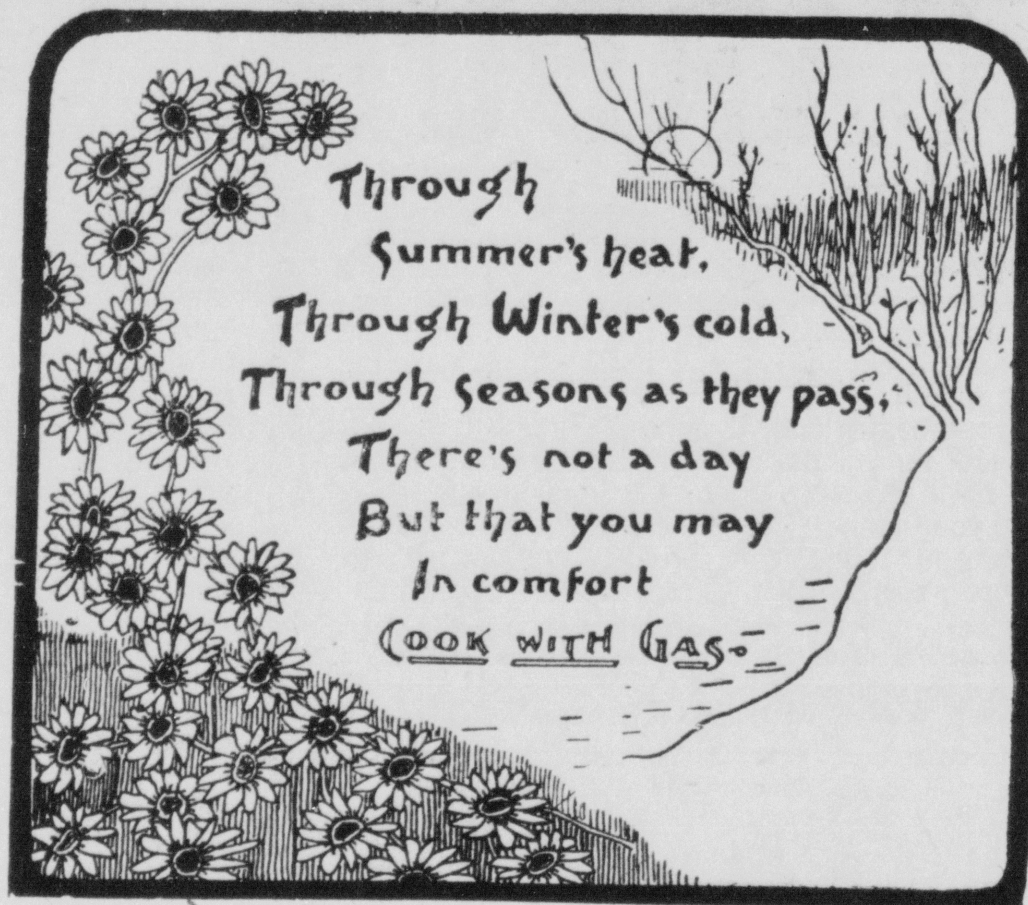 Through
Summer's heat,
Through Winter's cold,
Through Seasons as they pass,
There's not a day
But that you may
In comfort
COOK WITH GAS.